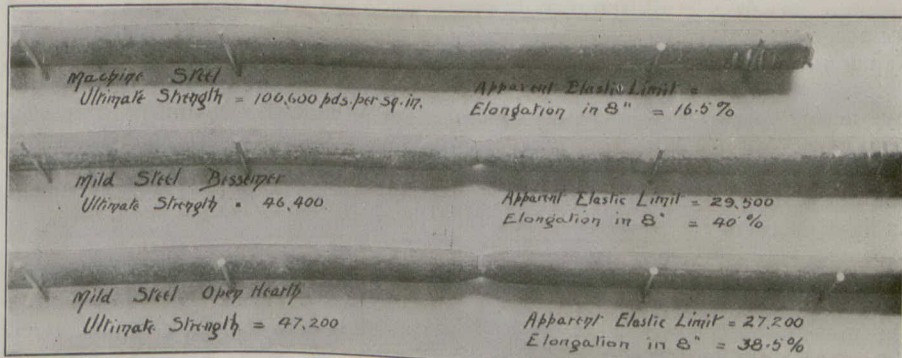 Machine Steel
Ultimate Strength = 100,600 pds. per sq. in.
Apparent Elastic Limit =
Elongation in 8" = 16.5%
Mild Steel Bessemer
Ultimate Strength = 46,400
Apparent Elastic Limit = 29,500
Elongation in 8" = 40%
Mild Steel Open Hearth
Ultimate Strength = 47,200
Apparent Elastic Limit = 27,200
Elongation in 8" = 38.5%